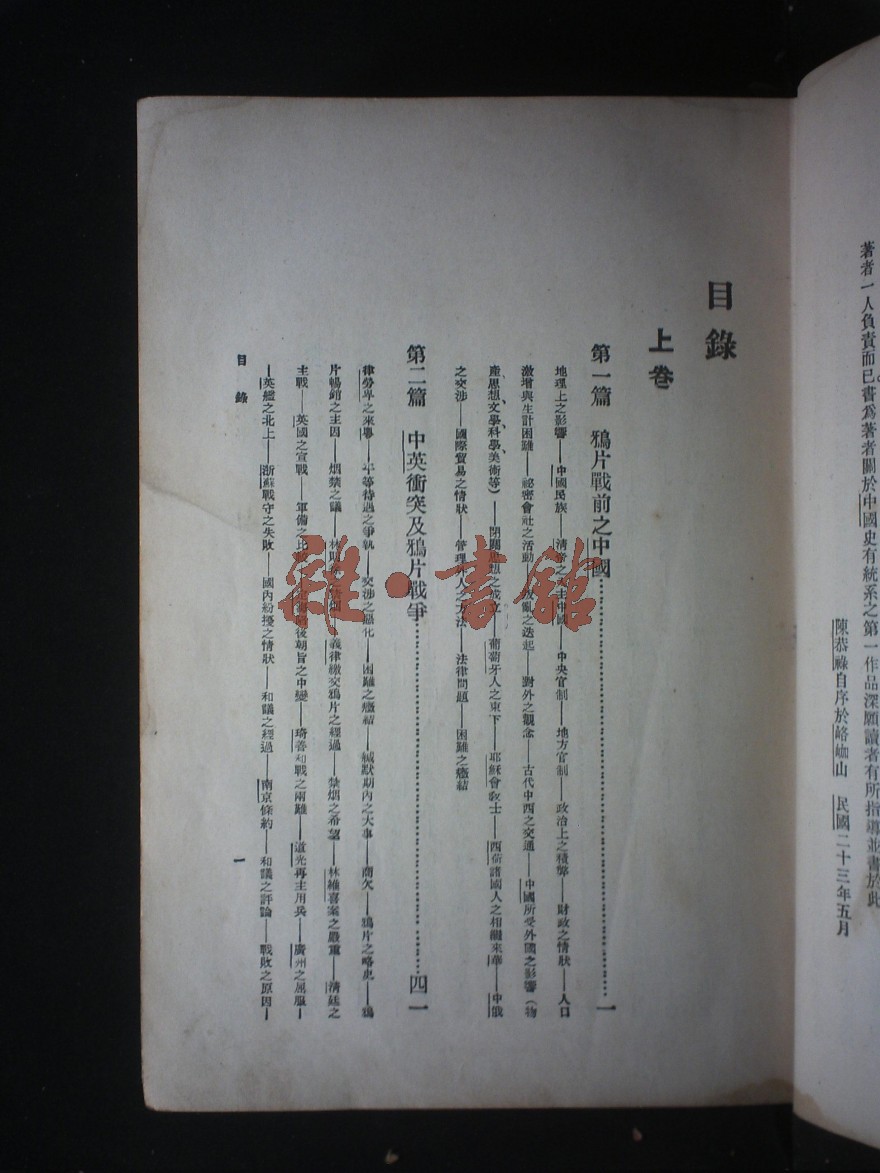 著者一人負責而已書爲著者關於中國史有統系之第一作品深願讀者有所指導並書於此
陳恭祿自序於珞珈山 民國二十三年五月
目錄
上卷
第一篇 鴉片戰前之中國……一
地理上之影響——中國民族——清帝之入主中國——中央官制——地方官制——政治上之積弊——財政之情狀——人口
激增與生計困難——祕密會社之活動——叛亂之迭起——對外之觀念——古代中西之交通——中國所受外國之影響（物
產、思想、文學、科學、美術等）——閉關思想之成立——葡萄牙人之東下——耶穌會教士——西荷諸國人之相繼來華——中俄
之交涉——國際貿易之情狀——管理外人之方法——法律問題——困難之癥結
第二篇 中英衝突及鴉片戰爭……四一
律勞卑之來粵——平等待遇之爭執——交涉之惡化——困難之癥結——緘默期內之大事——商欠——鴉片之略史——鴉
片暢銷之主因——烟禁之議——林則徐之禁烟——義律繳交鴉片之經過——禁烟之希望——林維喜案之嚴重——清廷之
主戰——英國之宣戰——軍備之比較——定海陷後朝旨之中變——琦善和戰之兩難——道光再主用兵——廣州之屈服—
—英艦之北上——浙蘇戰守之失敗——國內紛擾之情狀——和議之經過——南京條約——和議之評論——戰敗之原因—
目錄
一
雜·書館